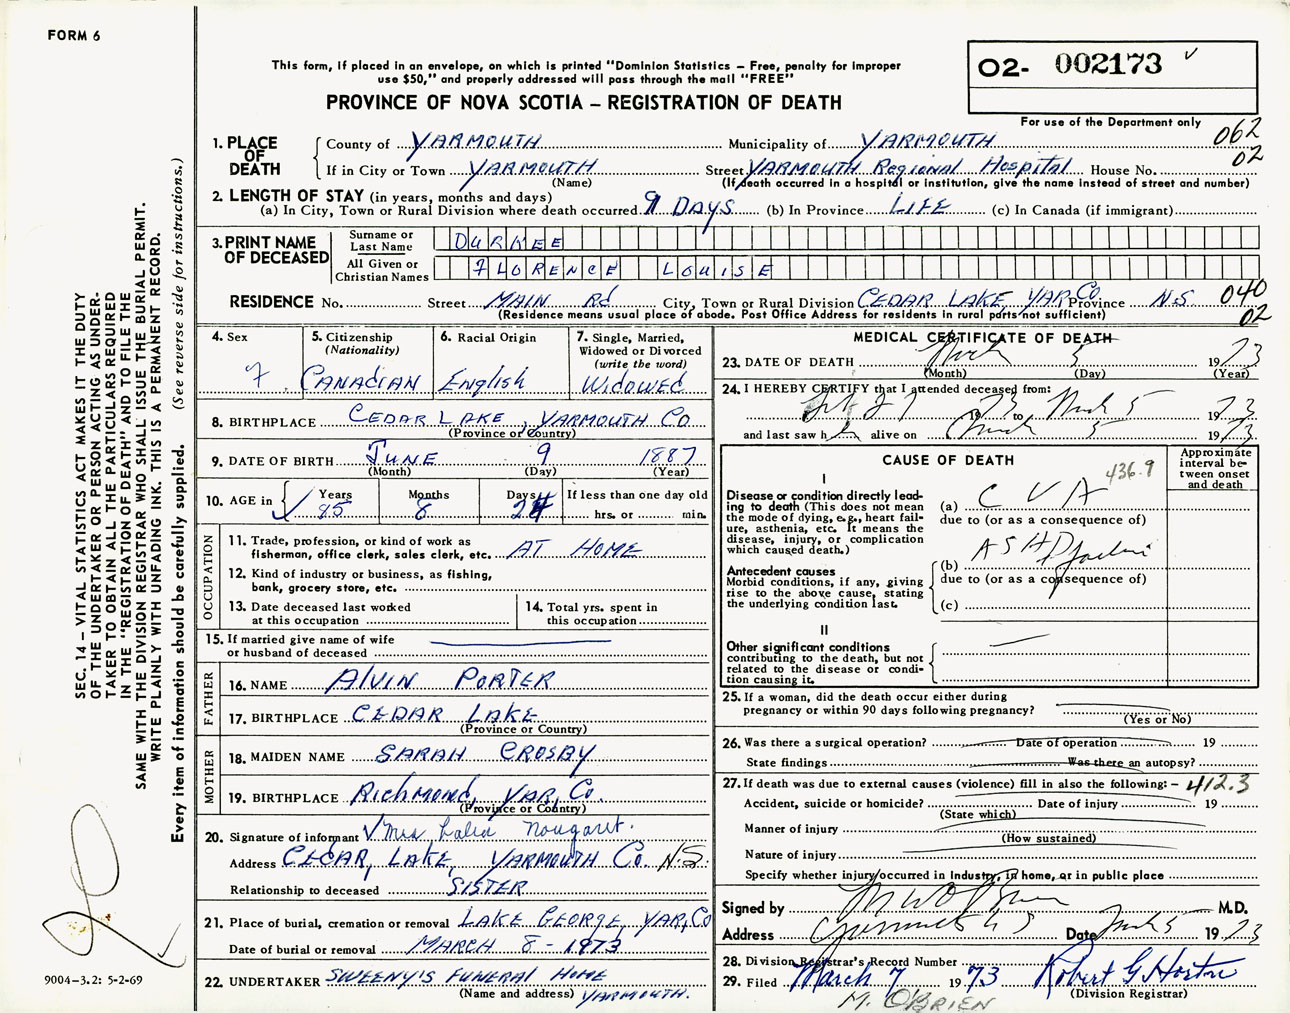 FORM 6
This form, if placed in an envelope, on which is printed "Dominion Statistics – Free, penalty for improper
use $50," and properly addressed will pass through the mail "FREE"
PROVINCE OF NOVA SCOTIA – REGISTRATION OF DEATH
O2- 002173
For use of the Department only
062
02
1. PLACE OF DEATH County of YARMOUTH Municipality of YARMOUTH
If in City or Town YARMOUTH Street YARMOUTH Regional Hospital House No.
(Name) (If death occurred in a hospital or institution, give the name instead of street and number)
2. LENGTH OF STAY (in years, months and days)
(a) In City, Town or Rural Division where death occurred 9 DAYS (b) In Province LIFE (c) In Canada (if immigrant)
3. PRINT NAME OF DECEASED
Surname or Last Name DURKEE
All Given or Christian Names FLORENCE LOUISE
RESIDENCE No. Street MAIN Rd City, Town or Rural Division CEDAR LAKE YAR Co Province N.S 040
02
(Residence means usual place of abode. Post Office Address for residents in rural parts not sufficient)
4. Sex F.
5. Citizenship (Nationality) CANADIAN
6. Racial Origin English
7. Single, Married, Widowed or Divorced (write the word) WIDOWED
8. BIRTHPLACE CEDAR LAKE, YARMOUTH Co
(Province or Country)
9. DATE OF BIRTH JUNE 9 1887
(Month) (Day) (Year)
10. AGE in Years 85 Months 8 Days 24 If less than one day old
hrs. or min.
OCCUPATION
11. Trade, profession, or kind of work as
fisherman, office clerk, sales clerk, etc. AT HOME
12. Kind of industry or business, as fishing,
bank, grocery store, etc.
13. Date deceased last worked
at this occupation
14. Total yrs. spent in
this occupation
15. If married give name of wife
or husband of deceased
FATHER
16. NAME ALVIN PORTER
17. BIRTHPLACE CEDAR LAKE
(Province or Country)
MOTHER
18. MAIDEN NAME SARAH CROSBY
19. BIRTHPLACE Richmond, YAR, Co.
(Province or Country)
20. Signature of informant Mrs Lalia Nougaret.
Address CEDAR, LAKE, YARMOUTH Co. N.S.
Relationship to deceased SISTER
21. Place of burial, cremation or removal LAKE GEORGE, YAR, Co
Date of burial or removal MARCH 8 - 1973
22. UNDERTAKER SWEENY'S FUNERAL HOME
(Name and address) YARMOUTH.
MEDICAL CERTIFICATE OF DEATH
23. DATE OF DEATH March 5 1973
(Month) (Day) (Year)
24. I HEREBY CERTIFY that I attended deceased from:
Feb 27 1973 to March 5 1973
and last saw her alive on March 5 1973
CAUSE OF DEATH
436.9
Approximate interval between onset and death
I
Disease or condition directly lead-
ing to death (This does not mean
the mode of dying, e.g., heart fail-
ure, asthenia, etc. It means the
disease, injury, or complication
which caused death.)
(a) C V A
due to (or as a consequence of)
Antecedent causes
Morbid conditions, if any, giving
rise to the above cause, stating
the underlying condition last.
(b) ASHD
due to (or as a consequence of)
(c)
II
Other significant conditions
contributing to the death, but not
related to the disease or condi-
tion causing it.
25. If a woman, did the death occur either during
pregnancy or within 90 days following pregnancy?
(Yes or No)
26. Was there a surgical operation? Date of operation 19
State findings Was there an autopsy?
27. If death was due to external causes (violence) fill in also the following: – 412.3
Accident, suicide or homicide? Date of injury 19
(State which)
Manner of injury
(How sustained)
Nature of injury
Specify whether injury occurred in Industry, in home, or in public place
Signed by M.D.
Address Yarmouth NS Date March 5 1973
28. Division Registrar's Record Number
29. Filed March 7 1973 Robert G Horton
(Division Registrar)
M. O'BRIEN
SEC. 14 – VITAL STATISTICS ACT MAKES IT THE DUTY
OF THE UNDERTAKER OR PERSON ACTING AS UNDER-
TAKER TO OBTAIN ALL THE PARTICULARS REQUIRED
IN THE "REGISTRATION OF DEATH" AND TO FILE THE
SAME WITH THE DIVISION REGISTRAR WHO SHALL ISSUE THE BURIAL PERMIT.
WRITE PLAINLY WITH UNFADING INK. THIS IS A PERMANENT RECORD.
Every item of information should be carefully supplied. (See reverse side for instructions.)
9004-3.2: 5-2-69